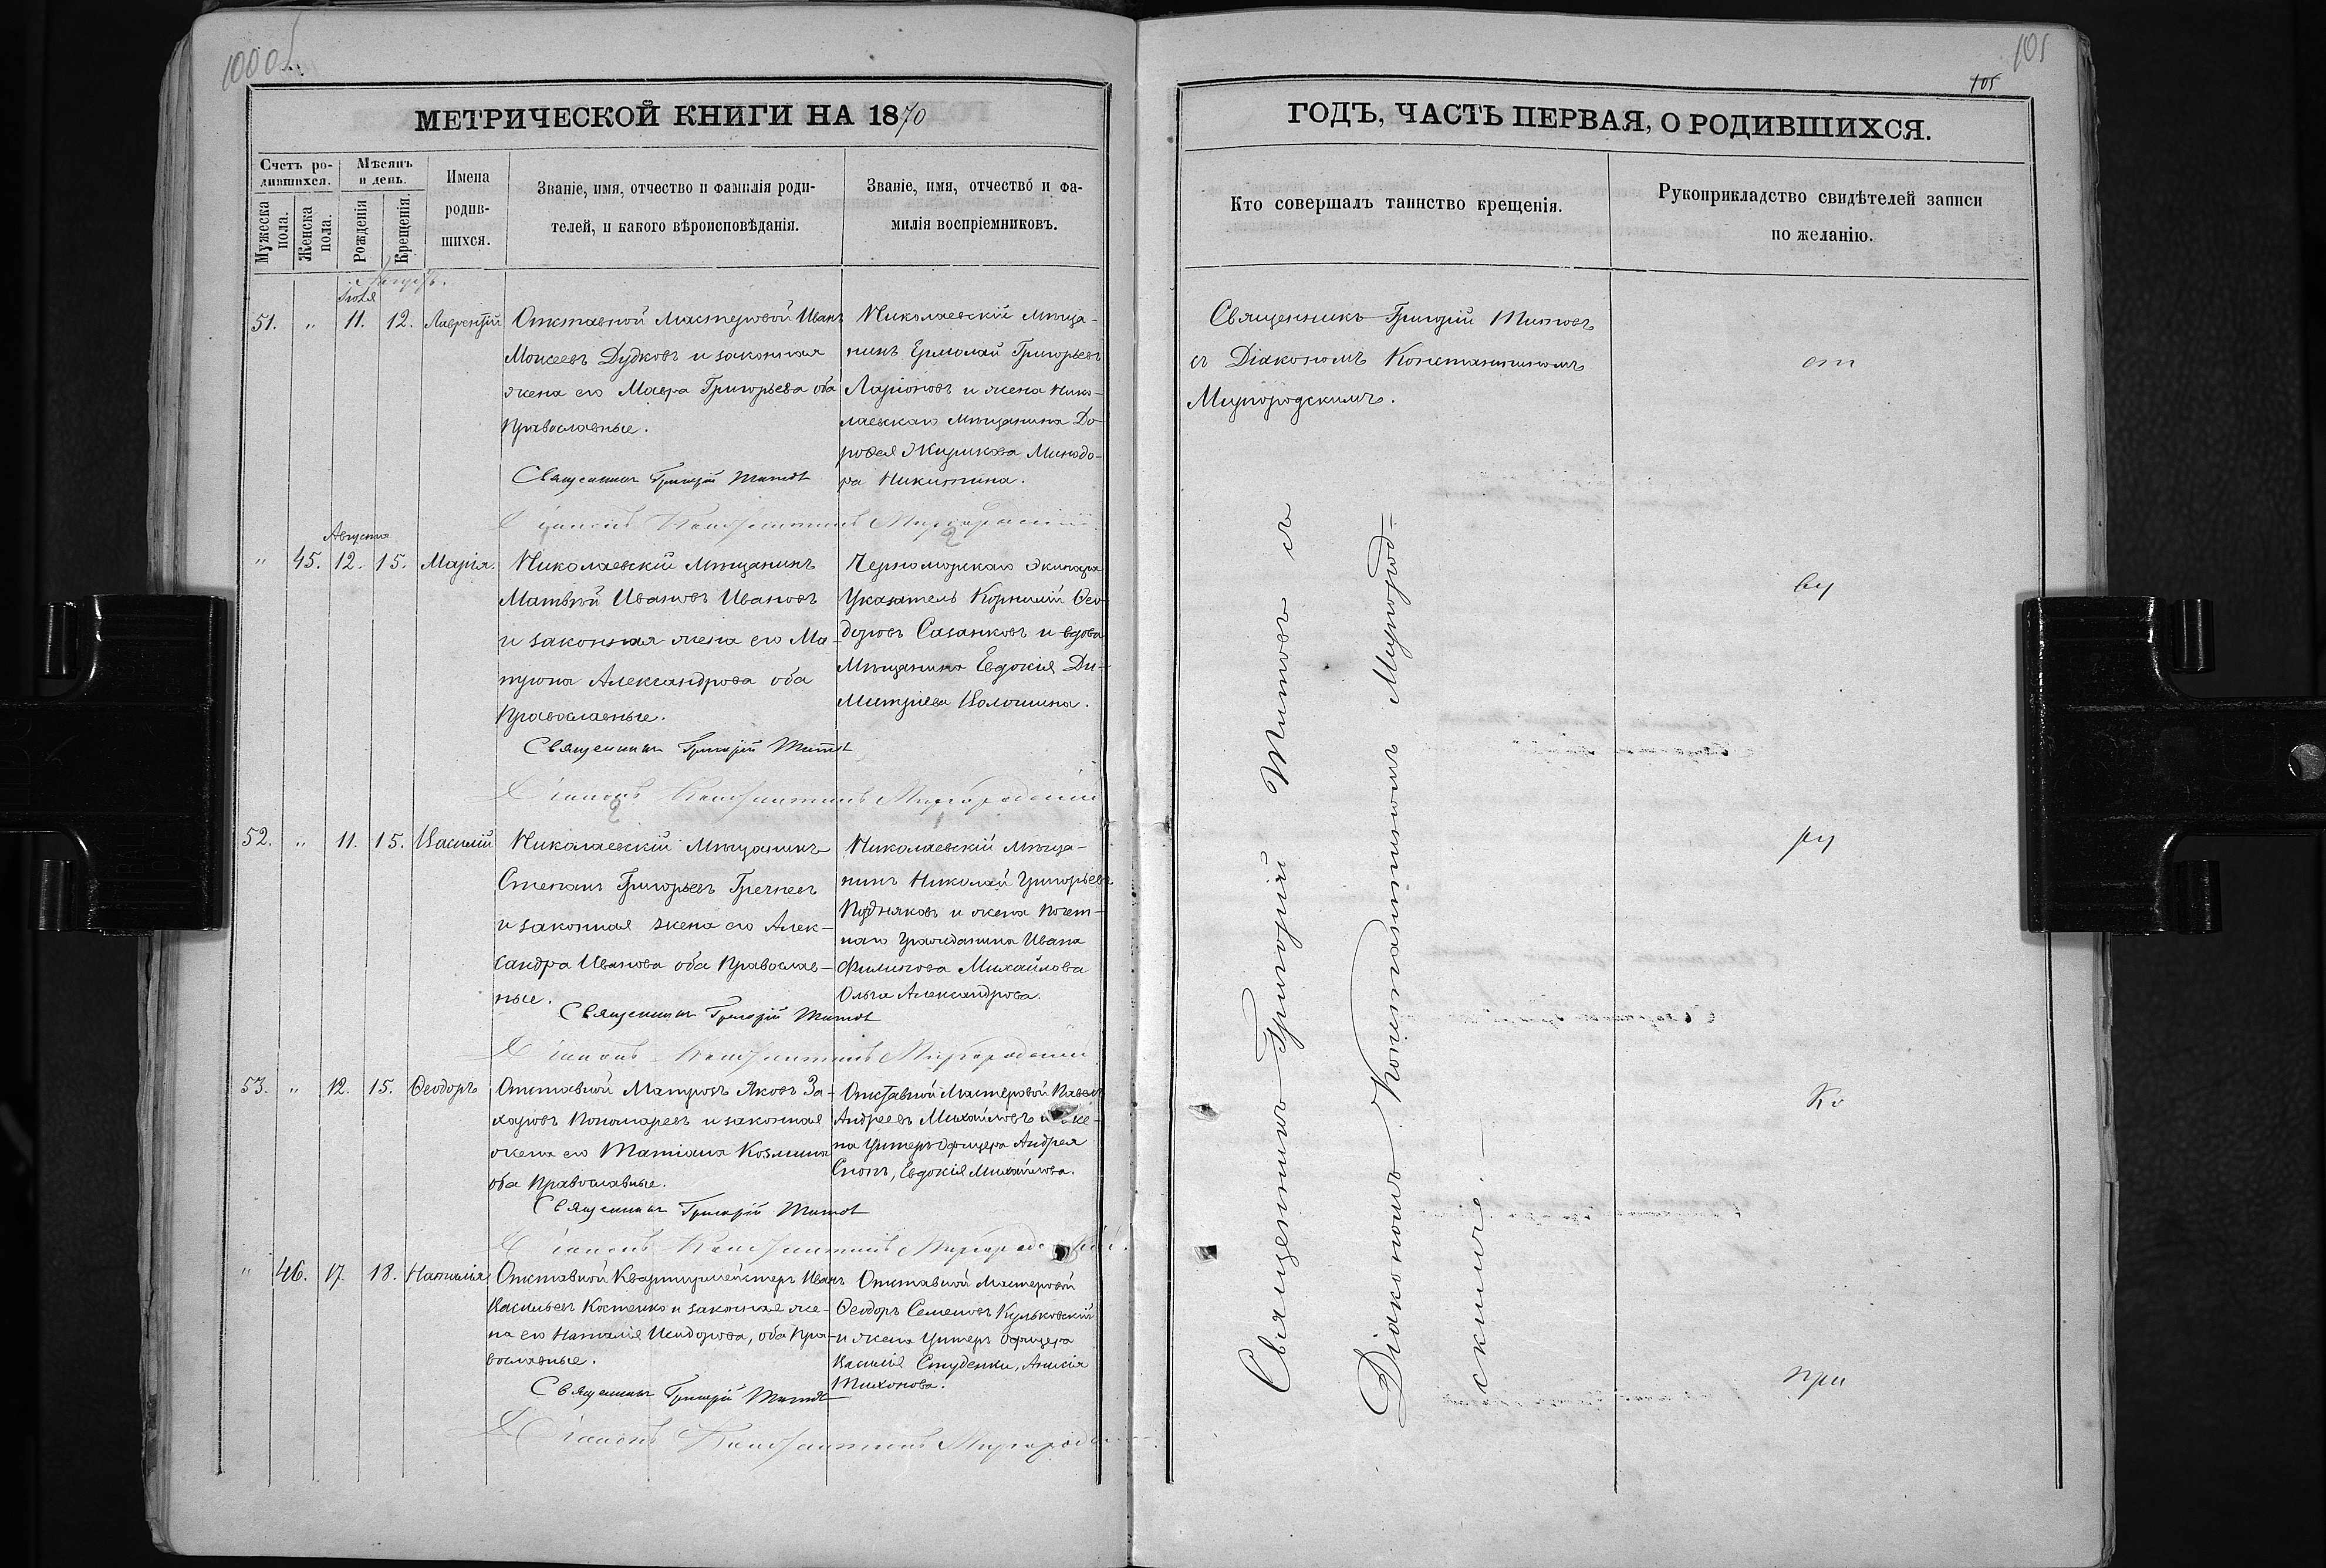 100 об
МЕТРИЧЕСКОЙ КНИГИ НА 1870
Счетъ ро-
дившихся.
Мѣсяцъ
и день.
Мужеска
пола.
Женска
пола.
Рожденія
Крещенія.
Имена
родив-
шихся.
Званіе, имя, отчество и фамилія роди-
телей, и какого вѣроисповѣданія.
Званіе, имя, отчество и фа-
милія воспріемниковъ.
Іюля
51. " 11. 12. Лаврентій
Отставной Мастеровой Иванъ
Моисеевъ Дудковъ и законная
жена его Мавра Григорьева оба
Православные.
Священникъ Григорій Титовъ
Николаевскій Мѣща-
нинъ Ермолай Григорьевъ
Ларіоновъ и жена Нико-
лаевскаго Мѣщанина До-
рофея Жирикова Минодо-
ра Никитина.
Діаконъ Константинъ Миргородскій
Августа
" 45. 12. 15. Марія.
Николаевскій Мѣщанинъ
Матвѣй Ивановъ Ивановъ
и законная жена его Ма-
трона Александрова оба
Православные.
Священникъ Григорій Титовъ
Черноморскаго Экипажа
Указатель Корнилій Ѳео-
доровъ Сазанковъ и вдова
Мѣщанина Евдокія Ди-
митріева Волошина.
Діаконъ Константинъ Миргородскій
52. " 11. 15. Василій
Николаевскій Мѣщанинъ
Степанъ Григорьевъ Гречневъ
и законная жена его Алек-
сандра Иванова оба Православ-
ные.
Священникъ Григорій Титовъ
Николаевскій Мѣща-
нинъ Николай Григорьевъ
Поздняковъ и жена Почет-
наго Гражданина Ивана
Филипова Михайлова
Ольга Александрова.
Діаконъ Константинъ Миргородскій
53. " 12. 15. Ѳеодоръ
Отставной Матросъ Яковъ За-
харовъ Пономаревъ и законная
жена его Татіана Козмина
оба Православные.
Священникъ Григорій Титовъ
Отставной Мастеровой Павелъ
Андреевъ Михайловъ и же-
на Унтеръ Офицера Андрея
Снопъ, Евдокія Михайлова.
Діаконъ Константинъ Миргородскій.
" 46. 17. 18. Наталія
Отставной Квартирмейстеръ Иванъ
Васильевъ Костенко и законная же-
на его Наталія Исидорова, оба Пра-
вославные.
Священникъ Григорій Титовъ
Отставной Мастеровой
Ѳеодоръ Семеновъ Кульковскій
и жена Унтеръ Офицера
Василія Студенки, Анисія
Тихонова.
Діаконъ Константинъ Миргородскій
101
101
ГОДЪ, ЧАСТЬ ПЕРВАЯ, О РОДИВШИХСЯ.
Кто совершалъ таинство крещенія.
Рукоприкладство свидѣтелей записи
по желанію.
Священникъ Григорій Титовъ
съ Діакономъ Константиномъ
Миргородскимъ.
Священникъ Григорій Титовъ съ
Діакономъ Константиномъ Миргород-
скимъ.
ст
ву
ру
Ко
при